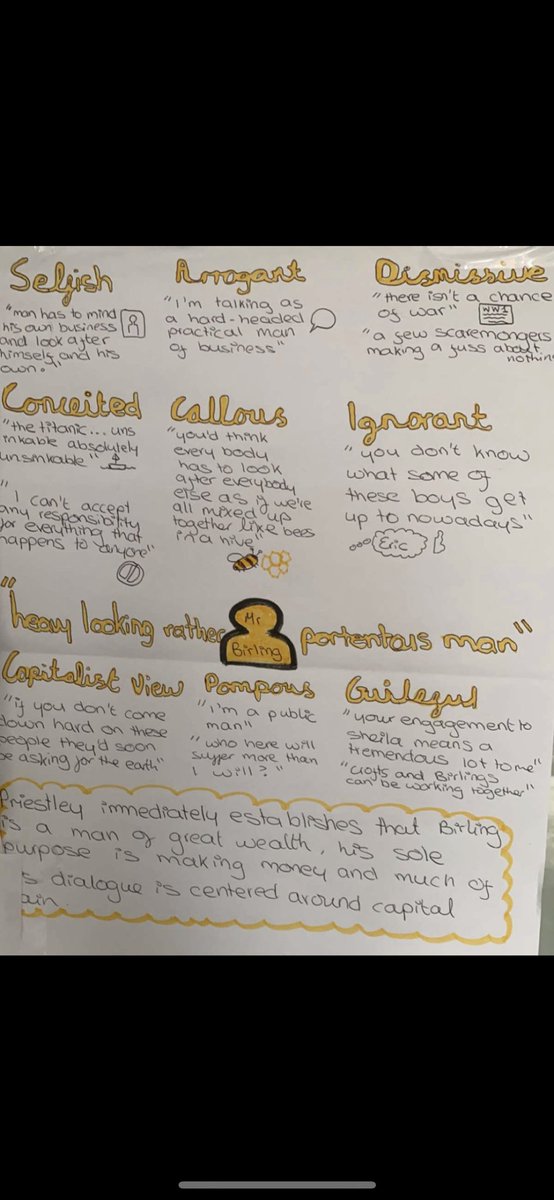 Selfish
"man has to mind
his own business
and look after
himself and his
own."
Arrogant
"I'm talking as
a hard-headed
practical man
of business"
Dismissive
"there isn't a chance
of war"
WW1
"a few scaremongers
making a fuss about
nothin
Conceited
"the titanic... uns
inkable absolutely
unsinkable"
"I can't accept
any responsibility
for everything that
happens to anyone"
Callous
"you'd think
every body
has to look
after everybody
else as if we're
all mixed up
together like bees
in a hive"
Ignorant
"you don't know
what some of
these boys get
up to nowadays"
Eric
"heavy looking rather portentous man"
Mr
Birling
Capitalist View
"if you don't come
down hard on these
people they'd soon
be asking for the earth"
Pompous
"I'm a public
man"
"who here will
suffer more than
I will?"
Guileful
"your engagement to
sheila means a
tremendous lot to me"
"Crofts and Birlings
can be working together"
Priestley immediately establishes that Birling
is a man of great wealth, his sole
purpose is making money and much of
s dialogue is centered around capital
ain.